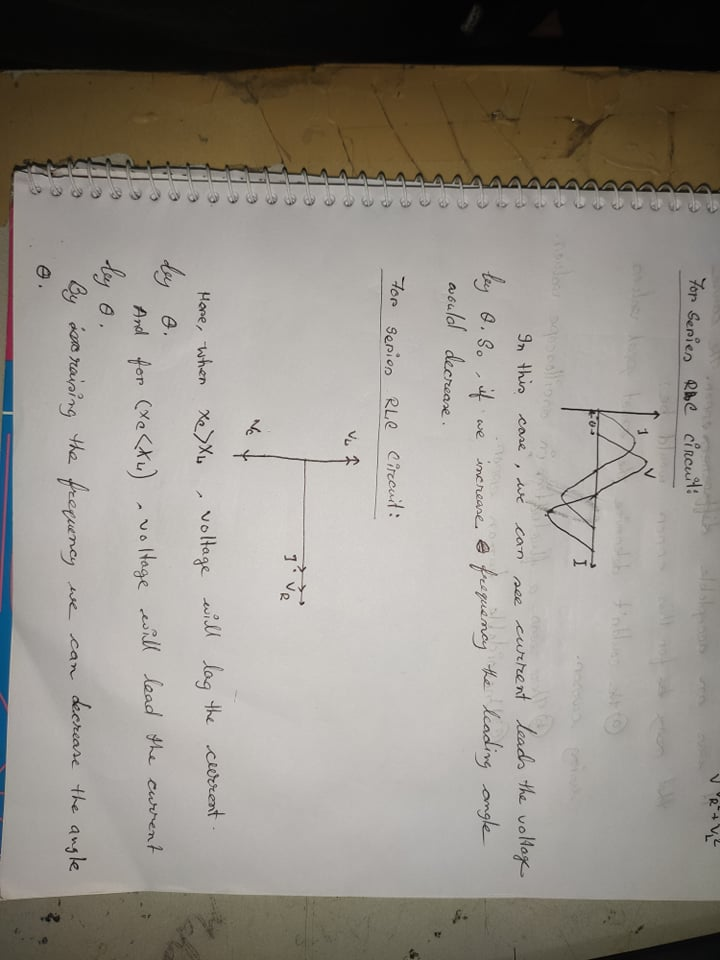 V R² + V L²
For series RLC circuit:
I
V
θ
I
In this case, we can see current leads the voltage
by θ. So, if we increase frequency the leading angle
would decrease.
For series RLC circuit:
VL
I VR
VC
Here, when Xc>XL, voltage will lag the current
by θ.
And for (Xc<XL), voltage will lead the current
by θ.
By the frequency we can decrease the angle
θ.